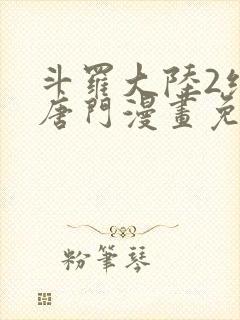 斗羅大陸2
唐門漫畫免
粉筆琴